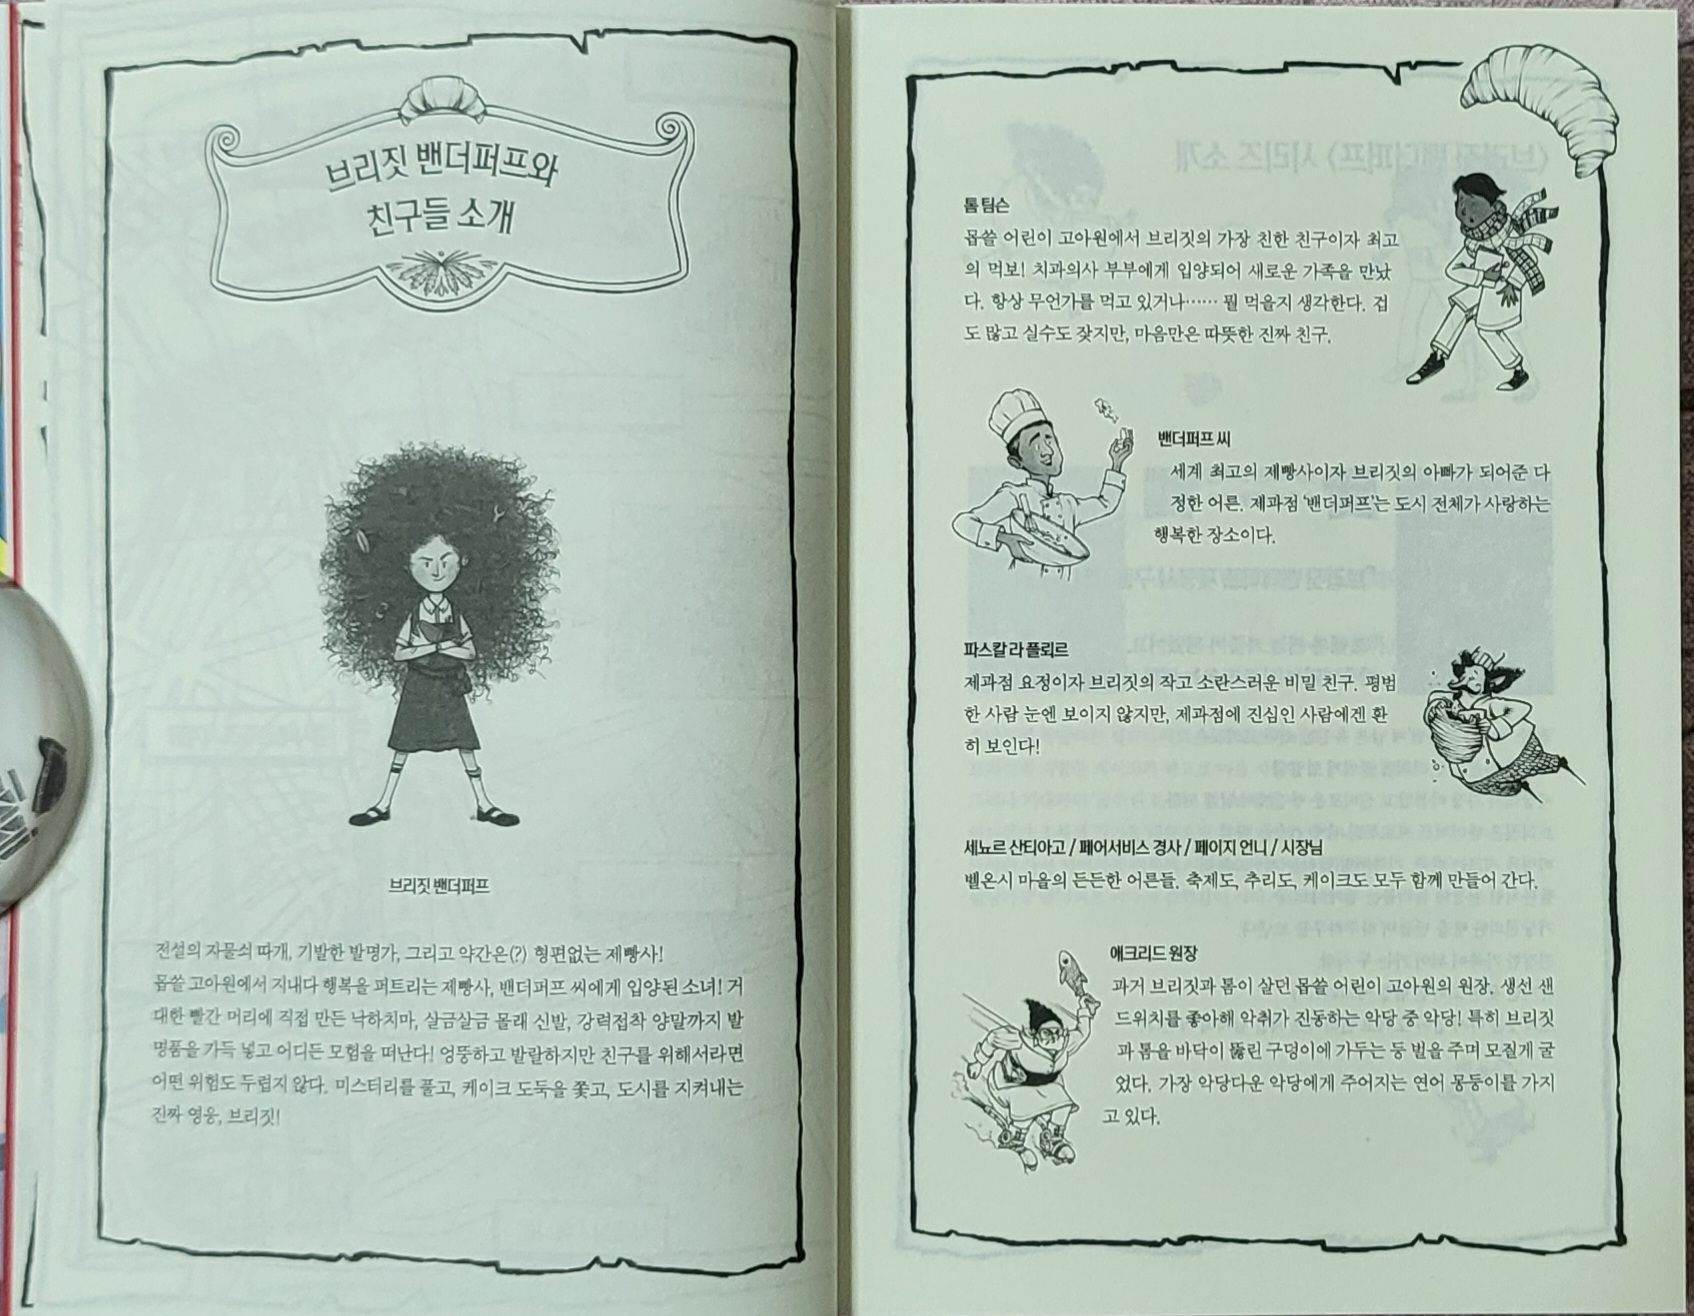 브리짓 밴더퍼프와
친구들 소개
브리짓 밴더퍼프
전설의 자물쇠 따개, 기발한 발명가, 그리고 약간은(?) 형편없는 제빵사!
몹쓸 고아원에서 지내다 행복을 퍼트리는 제빵사, 밴더퍼프 씨에게 입양된 소녀! 거
대한 빨간 머리에 직접 만든 낙하치마, 살금살금 몰래 신발, 강력접착 양말까지 발
명품을 가득 넣고 어디든 모험을 떠난다! 엉뚱하고 발랄하지만 친구를 위해서라면
어떤 위험도 두렵지 않다. 미스터리를 풀고, 케이크 도둑을 쫓고, 도시를 지켜내는
진짜 영웅, 브리짓!
톰 팀슨
몹쓸 어린이 고아원에서 브리짓의 가장 친한 친구이자 최고
의 먹보! 치과의사 부부에게 입양되어 새로운 가족을 만났
다. 항상 무언가를 먹고 있거나…… 뭘 먹을지 생각한다. 겁
도 많고 실수도 잦지만, 마음만은 따뜻한 진짜 친구.
밴더퍼프 씨
세계 최고의 제빵사이자 브리짓의 아빠가 되어준 다
정한 어른. 제과점 '밴더퍼프'는 도시 전체가 사랑하는
행복한 장소이다.
파스칼 라 플뢰르
제과점 요정이자 브리짓의 작고 소란스러운 비밀 친구. 평범
한 사람 눈엔 보이지 않지만, 제과점에 진심인 사람에겐 환
히 보인다!
세뇨르 산티아고 / 페어서비스 경사 / 페이지 언니 / 시장님
벨온시 마을의 든든한 어른들. 축제도, 추리도, 케이크도 모두 함께 만들어 간다.
애크리드 원장
과거 브리짓과 톰이 살던 몹쓸 어린이 고아원의 원장. 생선 샌
드위치를 좋아해 악취가 진동하는 악당 중 악당! 특히 브리짓
과 톰을 바닥이 뚫린 구덩이에 가두는 등 벌을 주며 모질게 굴
었다. 가장 악당다운 악당에게 주어지는 연어 몽둥이를 가지
고 있다.